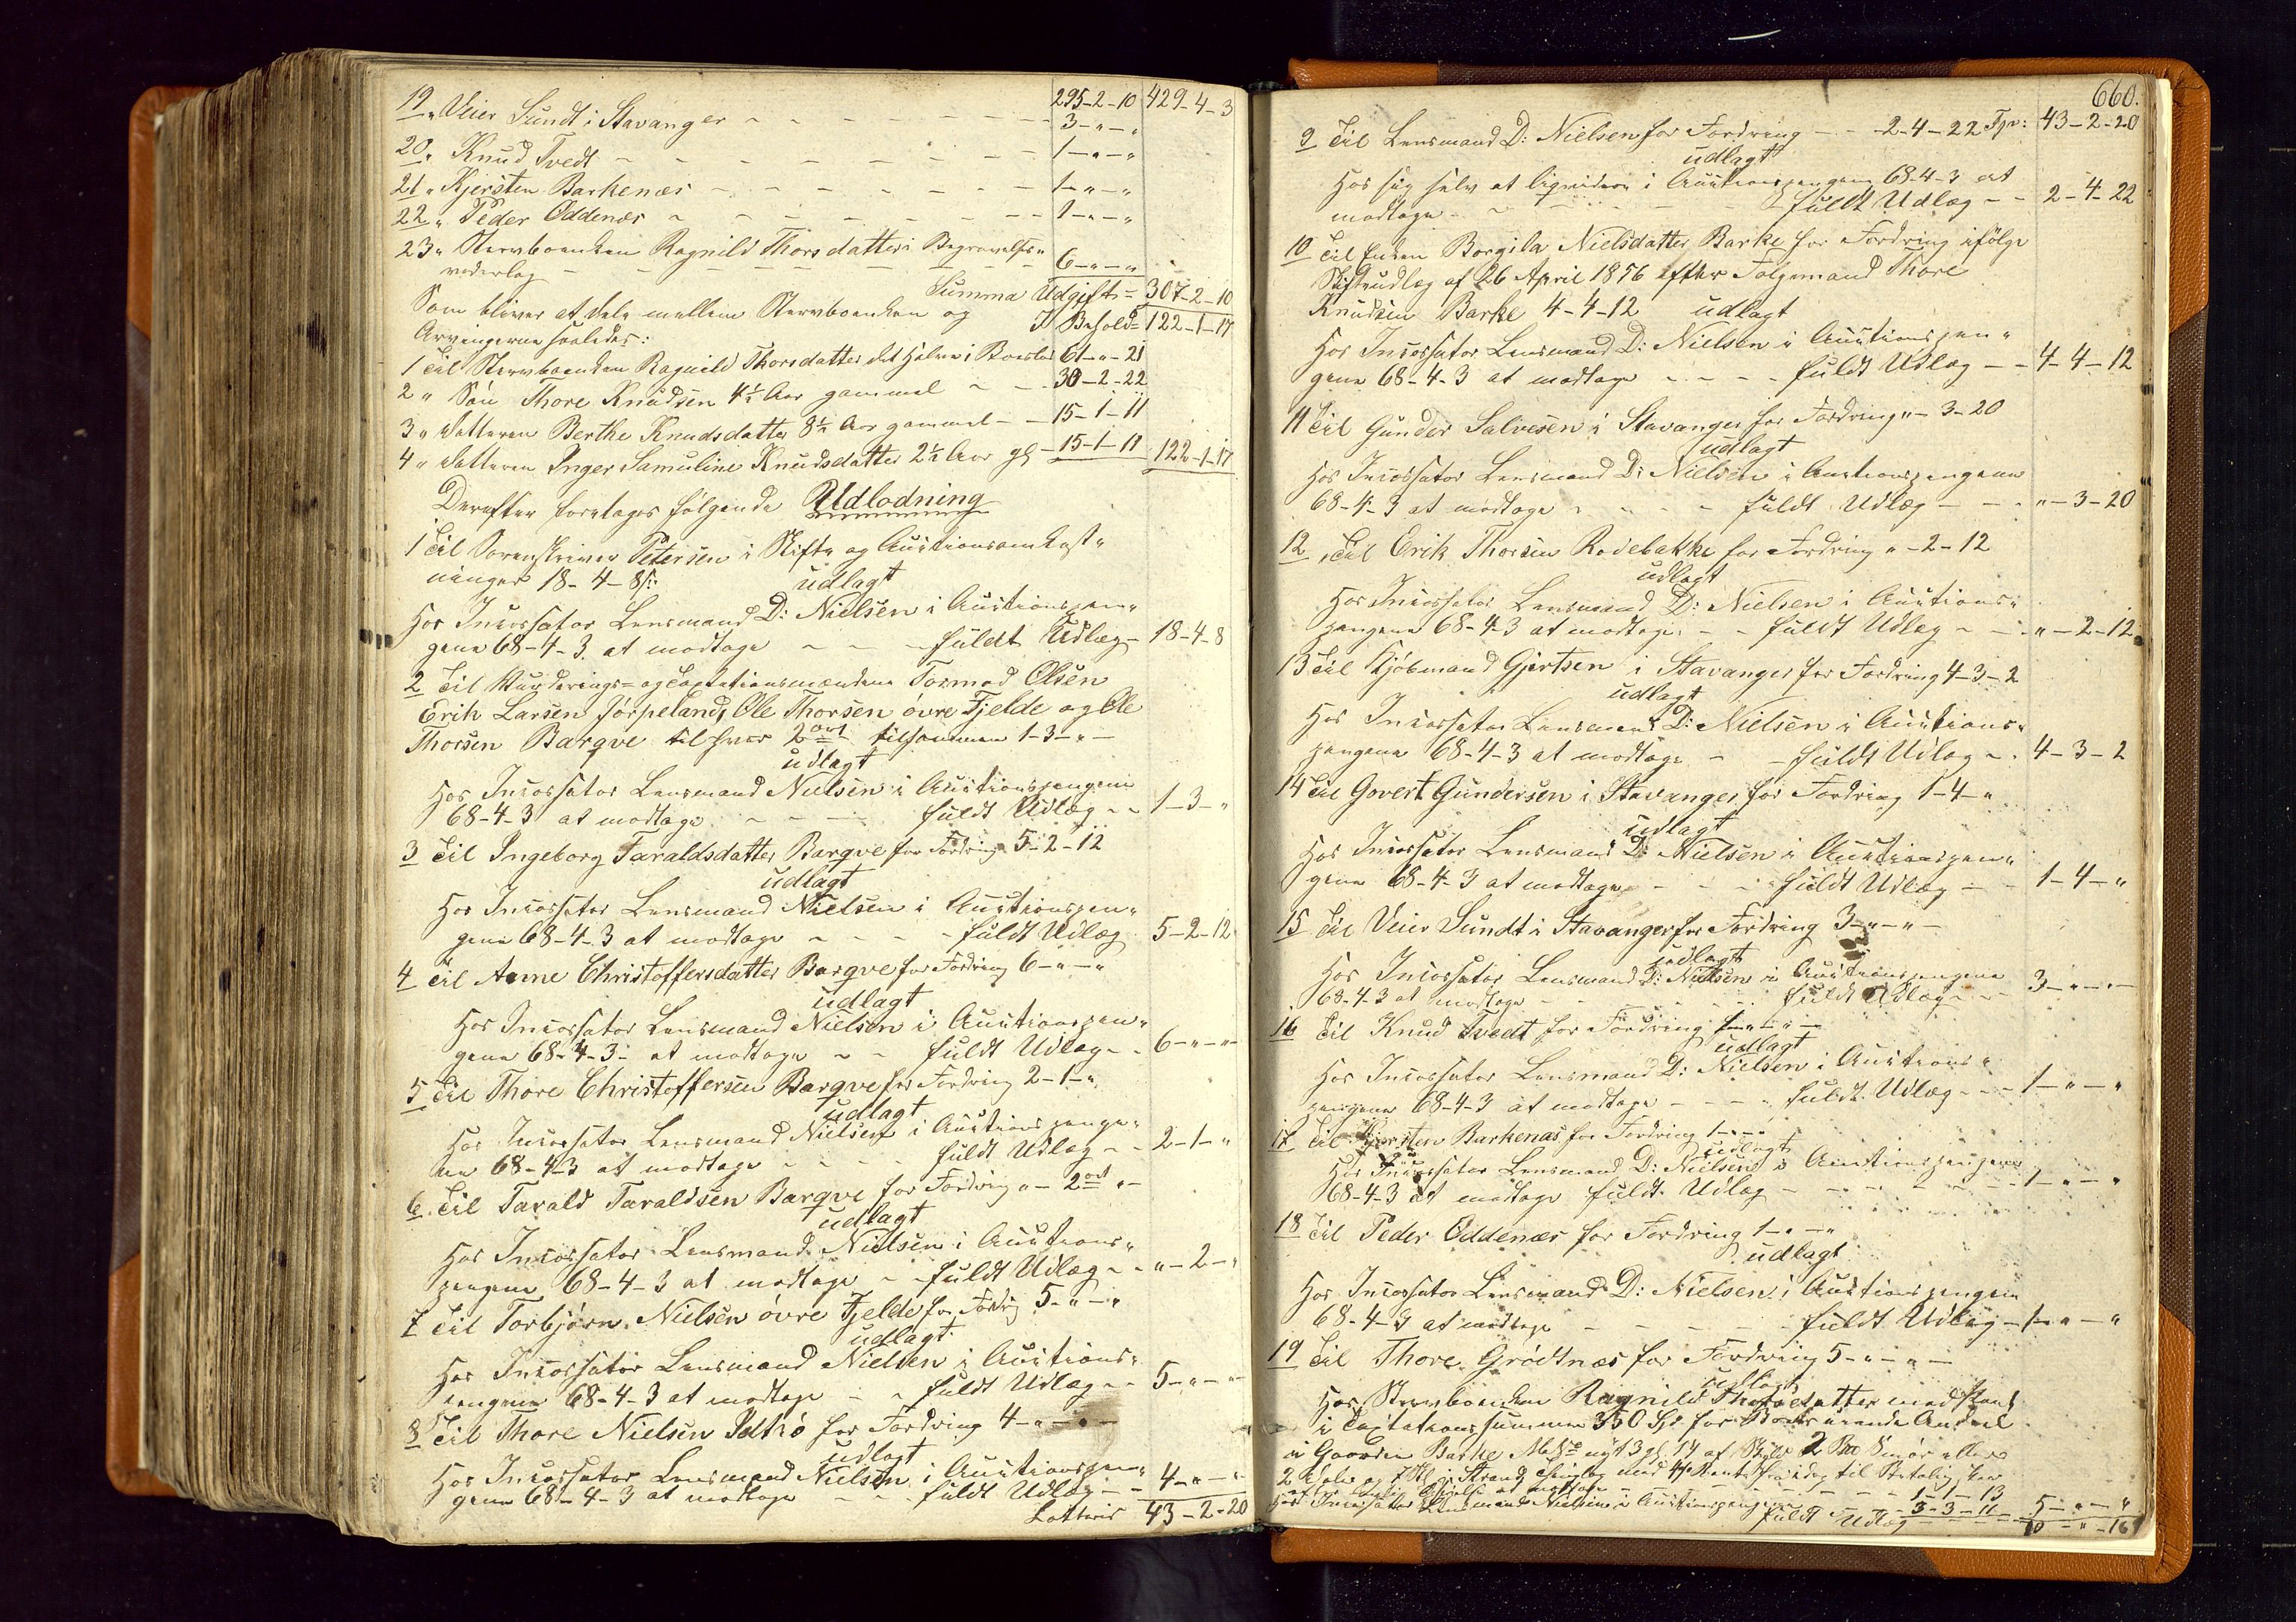 295-2-10 429-4-3
19 " Veier Sundt i Stavanger - - - - - - 3-"-"
20 " Knud Tvedt - - - - - - 1-"-"
21 " Kjersten Barkenæs - - - - - - 1-"-"
22 " Peder Oddenæs - - - - - - 1-"-"
23 " Stervboenken Ragnild Thorsdatter i Begravelses"
vederlag - - - - - - 6-"-"
Summa Udgift = 307-2-10
Som bliver at dele mellem Stervboenken og I Behold = 122-1-17
Arvingerne saaledes:
1 Til Stervboenken Ragnild Thorsdatter det halve i Boeslod 61-"-21
2 " Søn Thore Knudsen 4½ Aar gammel - - 30-2-22
3 " datteren Berthe Knudsdatter 8½ Aar gammel - - 15-1-11
4 " datteren Inger Samuline Knudsdatter 2½ Aar gl - 15-1-11 122-1-17
Derefter foretages følgende Udlodning
1 Til Sorenskriver Petersen i Skifte og Auctionsomkost"
ninger 18-4-8 s: udlagt
Hos Incassator Lensmand D: Nielsen i Auctionspen"
gene 68-4-3 at modtage - - - fuldt Udlæg - 18-4-8
2 Til Vurderings= og Taxtationsmændene Tormod Olsen
Erik Larsen Jørpeland, Ole Thorsen øvre Fjelde og Ole
Thorsen Barqve til hver 2 ort tilsammen 1-3-"-
udlagt
Hos Incassator Lensmand Nielsen i Auctionspengene
68-4-3 at modtage - - - fuldt Udlæg - - 1-3-"
3 Til Ingeborg Taraldsdatter Barqve for Fordring 5-2-12
udlagt
Hos Incassator Lensmand Nielsen i Auctionspen"
gene 68-4-3 at modtage - - - - fuldt Udlæg 5-2-12
4 Til Anne Christoffersdatter Barqve for Fordring 6-"-"
udlagt
Hos Incassator Lensmand Nielsen i Auctionspen"
gene 68-4-3- at modtage - - fuldt Udlæg - - 6-"-"
5 Til Thore Christoffersen Barqve for Fordring 2-1-"
udlagt
Hos Incassator Lensmand Nielsen i Auctionspenge"
ne 68-4-3 at modtage - - - - fuldt Udlæg - - 2-1-"
6 Til Tarald Taraldsen Barqve for Fordring "- 2 ort "-
udlagt
Hos Incassator Lensmand Nielsen i Auctions"
pengene 68-4-3 at modtage - - fuldt Udlæg - - "-2-"
7 Til Torbjørn Nielsen øvre Fjelde for Fordrig 5-"-"
udlagt
Hos Incassator Lensmand Nielsen i Auctions"
pengene 68-4-3 at modtage - - fuldt Udlæg - - 5-"-"
8 Til Thore Nielsen Idthø for Fordring 4-"-"-
udlagt
Hos Incassator Lensmand Nielsen i Auctionspen"
gene 68-4-3 at modtage - - fuldt Udlæg - - 4-"-"
Latteris 43-2-20
660.
9 Til Lensmand D: Nielsen for Fordring - - 2-4-22 Tpr: 43-2-20
udlagt
Hos sig selv at liqvidere i Auctionspengene 68-4-3 at
modtage - - - - - - fuldt Udlæg - - 2-4-22
10 Til Enken Borgila Nielsdatter Barke for Fordring ifølge
Skifteudlæg af 26 April 1856 efter Følgemand Thore
Knudsen Barke 4-4-12 udlagt
Hos Incassator Lensmand D: Nielsen i Auctionspen"
gene 68-4-3 at modtage - - - - fuldt Udlæg - - 4-4-12
11 Til Gunder Salvesen i Stavanger for Fordring "-3-20
udlagt
Hos Incassator Lensmand D: Nielsen i Auctionspengene
68-4-3 at modtage - - - - fuldt Udlæg - - "-3-20
12 Til Erik Thorsen Rodebakke for Fordring "-2-12
udlagt
Hos Incassator Lensmand D: Nielsen i Auctions"
pengene 68-4-3 at modtage - - fuldt Udlæg - - "-2-12
13 Til Kjøbmand Gjertsen i Stavanger for Fordring 4-3-2
udlagt
Hos Incassator Lensmand D: Nielsen i Auctions"
pengene 68-4-3 at modtage - - fuldt Udlæg - - 4-3-2
14 Til Govert Gundersen i Stavanger for Fordring 1-4-"
udlagt
Hos Incassator Lensmand D: Nielsen i Auctionspen"
gene 68-4-3 at modtage - - - fuldt Udlæg - - 1-4-"
15 Til Veier Sundt i Stavanger for Fordring 3-"-"-
udlagt
Hos Incassator Lensmand D: Nielsen i Auctionspengene
68-4-3 at modtage - - - - fuldt Udlæg - - 3-"-"-
16 Til Knud Tvedt for Fordring 1-"-"-
udlagt
Hos Incassator Lensmand D: Nielsen i Auctions"
pengene 68-4-3 at modtage - - - - fuldt Udlæg - - - 1-"-"
17 Til Kjersten Barkenæs for Fordring 1-"-"
udlagt
Hos Incassator Lensmand D: Nielsen i Auctionspengene
68-4-3 at modtage fuldt Udlæg - - - - - - 1-"-"
18 Til Peder Oddenæs for Fordring 1-"-"
udlagt
Hos Incassator Lensmand D: Nielsen i Auctionspengene
68-4-3 at modtage - - - - - fuldt Udlæg - 1-"-"
19 Til Thore Grødtnæs for Fordring 5-"-"-
udlagt
Hos Stervboenken Ragnild Thorsdatter mod Pant
i Taxtationssummen 350 Spd for Boets ieiende Andeel
i Gaarden Barke M: No nyt 3 gl 14 af Skyld 2 Smør eller
2 Daler og 7 Sk i Strand Thinglag med 4 Rente fra idag til Betaling sker
efter lovlig at modtage - - - - - - 1-1-13
Hos Incassator Lensmand Nielsen i Auctionspengene 3-3-11 5-"-"
fuldt Udlæg - - - 70-"-16